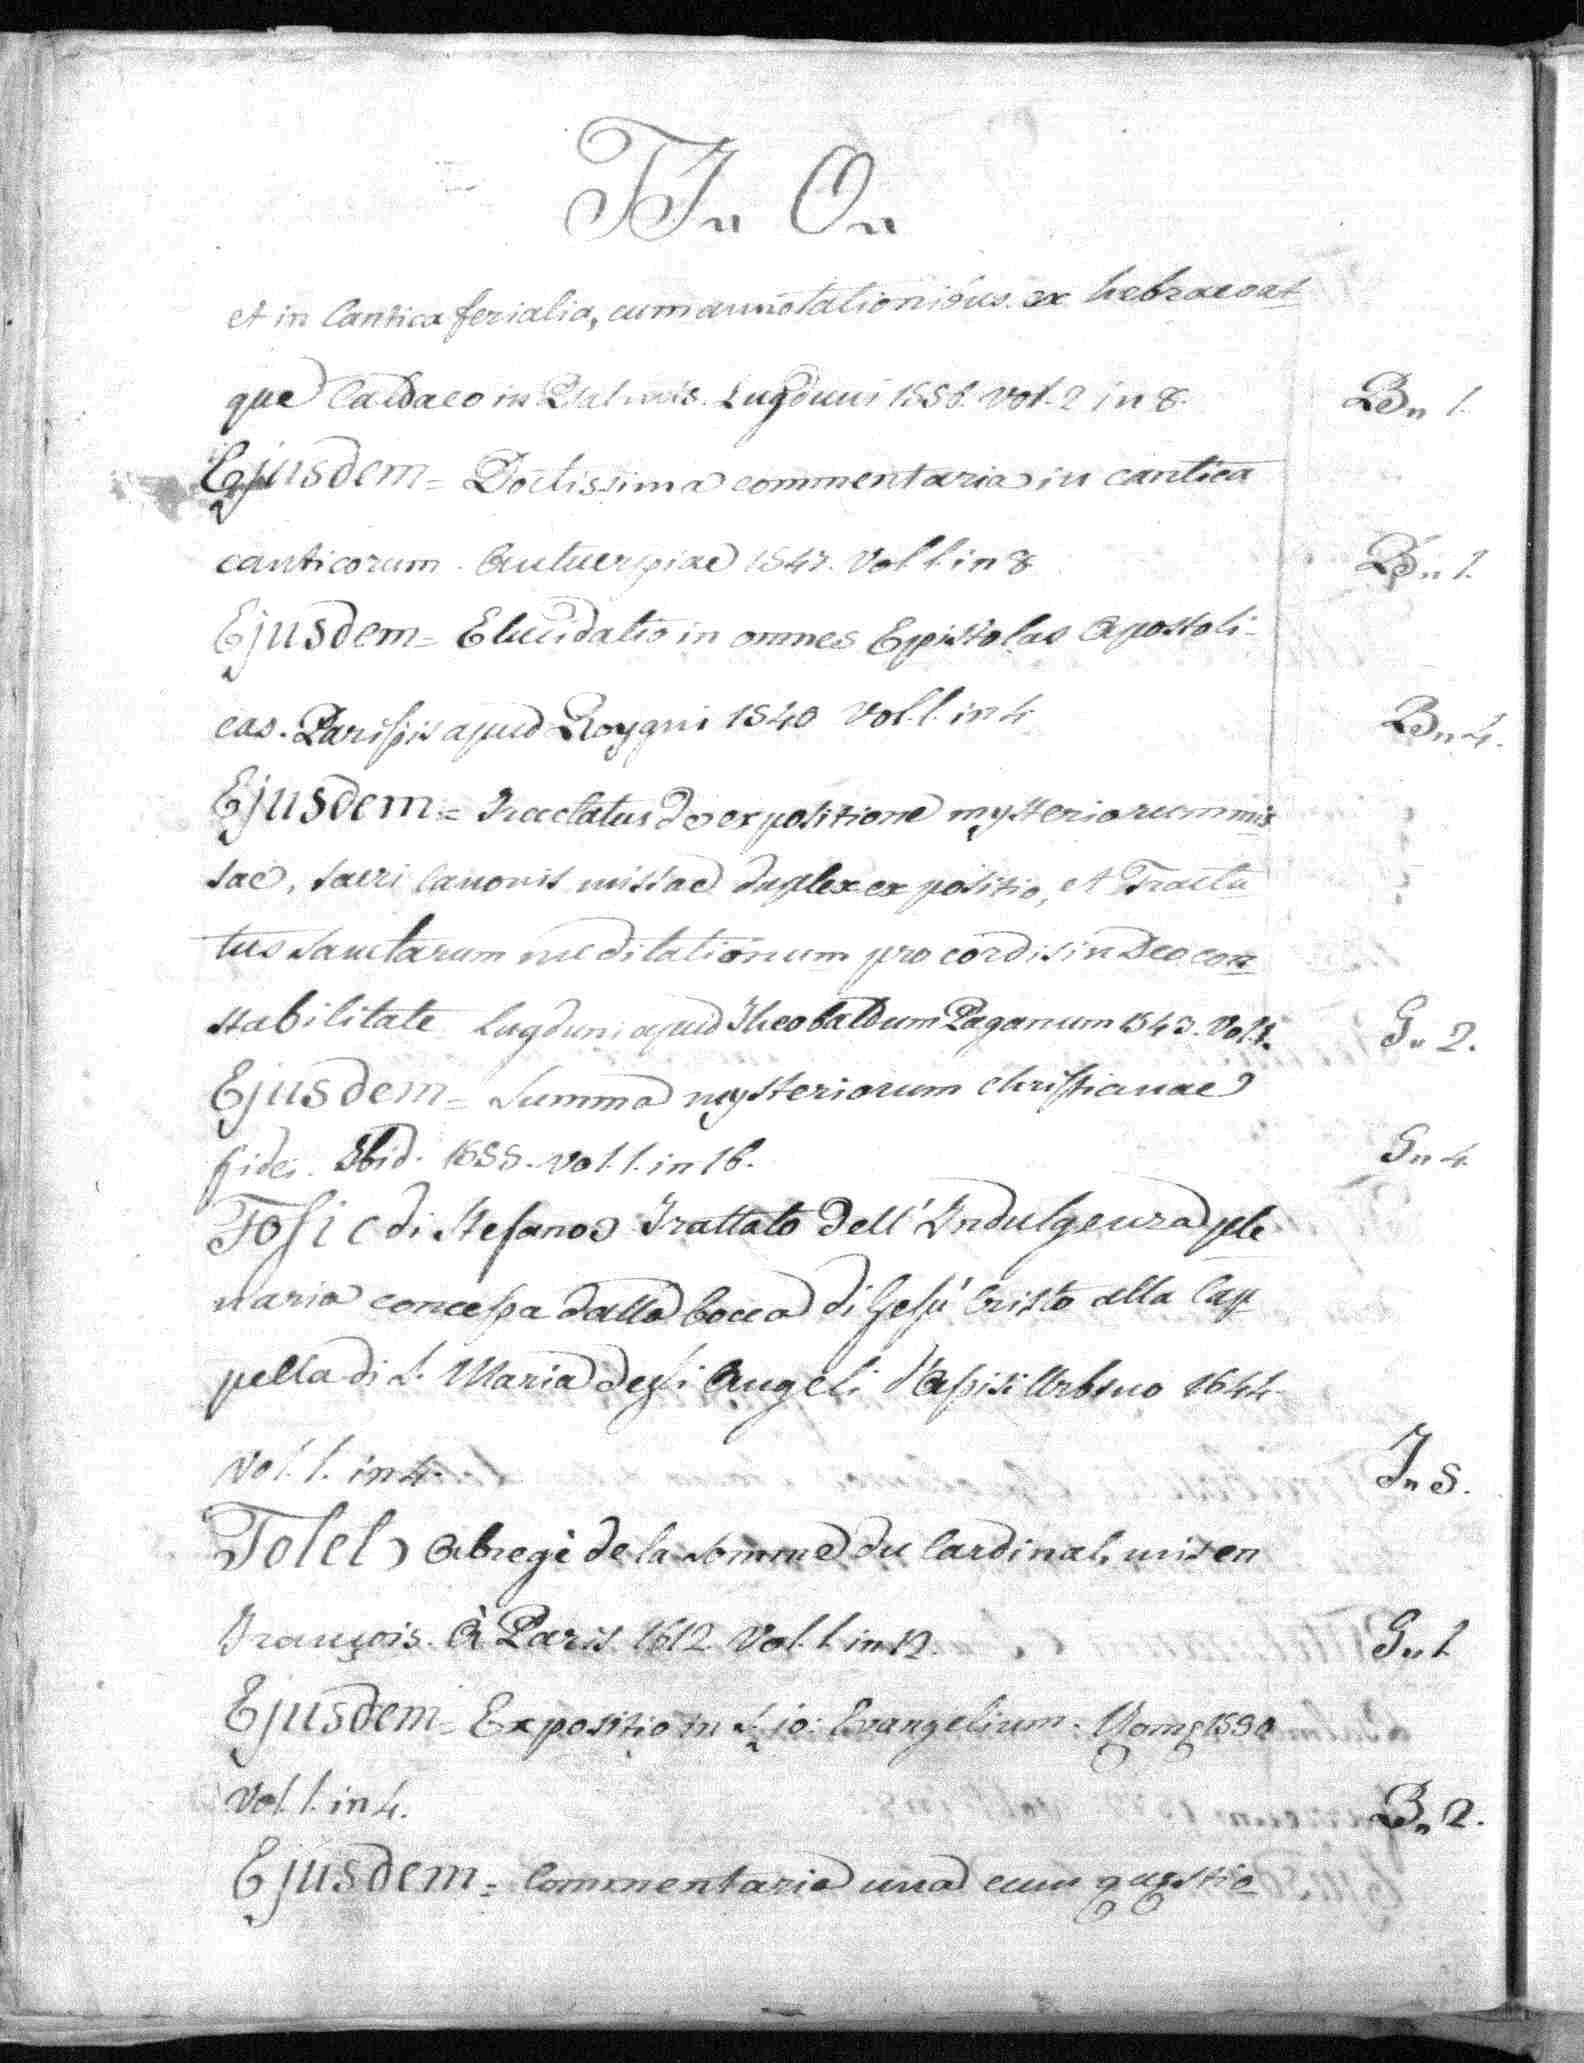 TI„ O„
et in Cantica ferialia, cum annotationibus ex hebraeo at
que Caldaeo in Psalmis. Lugduni 1556. Vol. 2 in 8. B„ 1.
Ejusdem = Doctissima commentaria in cantica
canticorum. Antuerpiae 1547. Vol. 1. in 8 B„ 1.
Ejusdem = Elucidatio in omnes Epistolas Apostoli-
cas. Parisiis apud Roygni 1540 Vol. 1. in 4 B„ 4.
Ejusdem = Tractatus de expositione mysteriorum mis
sae, sacri canonis missae duplex expositio, et Tracta
tus sanctarum meditationum pro cordis in Deo con
stabilitate Lugduni apud Theobaldum Paganum 1543. Vol. 1. G„ 2.
Ejusdem = Summa mysteriorum christianae
fidei. Ibid. 1555. Vol. 1. in 16. G„ 4.
Tosi (di Stefano) Trattato dell' Indulgenza ple
naria concessa dalla bocca di Gesù Cristo alla Cap
pella di S. Maria degli Angeli d'Assisi Urbino 1644.
Vol. 1. in 4. I„ 5.
Tolet) Abregè de la somme du Cardinal, mis en
François. À Paris 1612 Vol. 1. in 12. G„ 1
Ejusdem = Expositio in S. io: Evangelium. Romę 1590
Vol. 1. in 4. B„ 2.
Ejusdem = Commentaria una cum quęstio